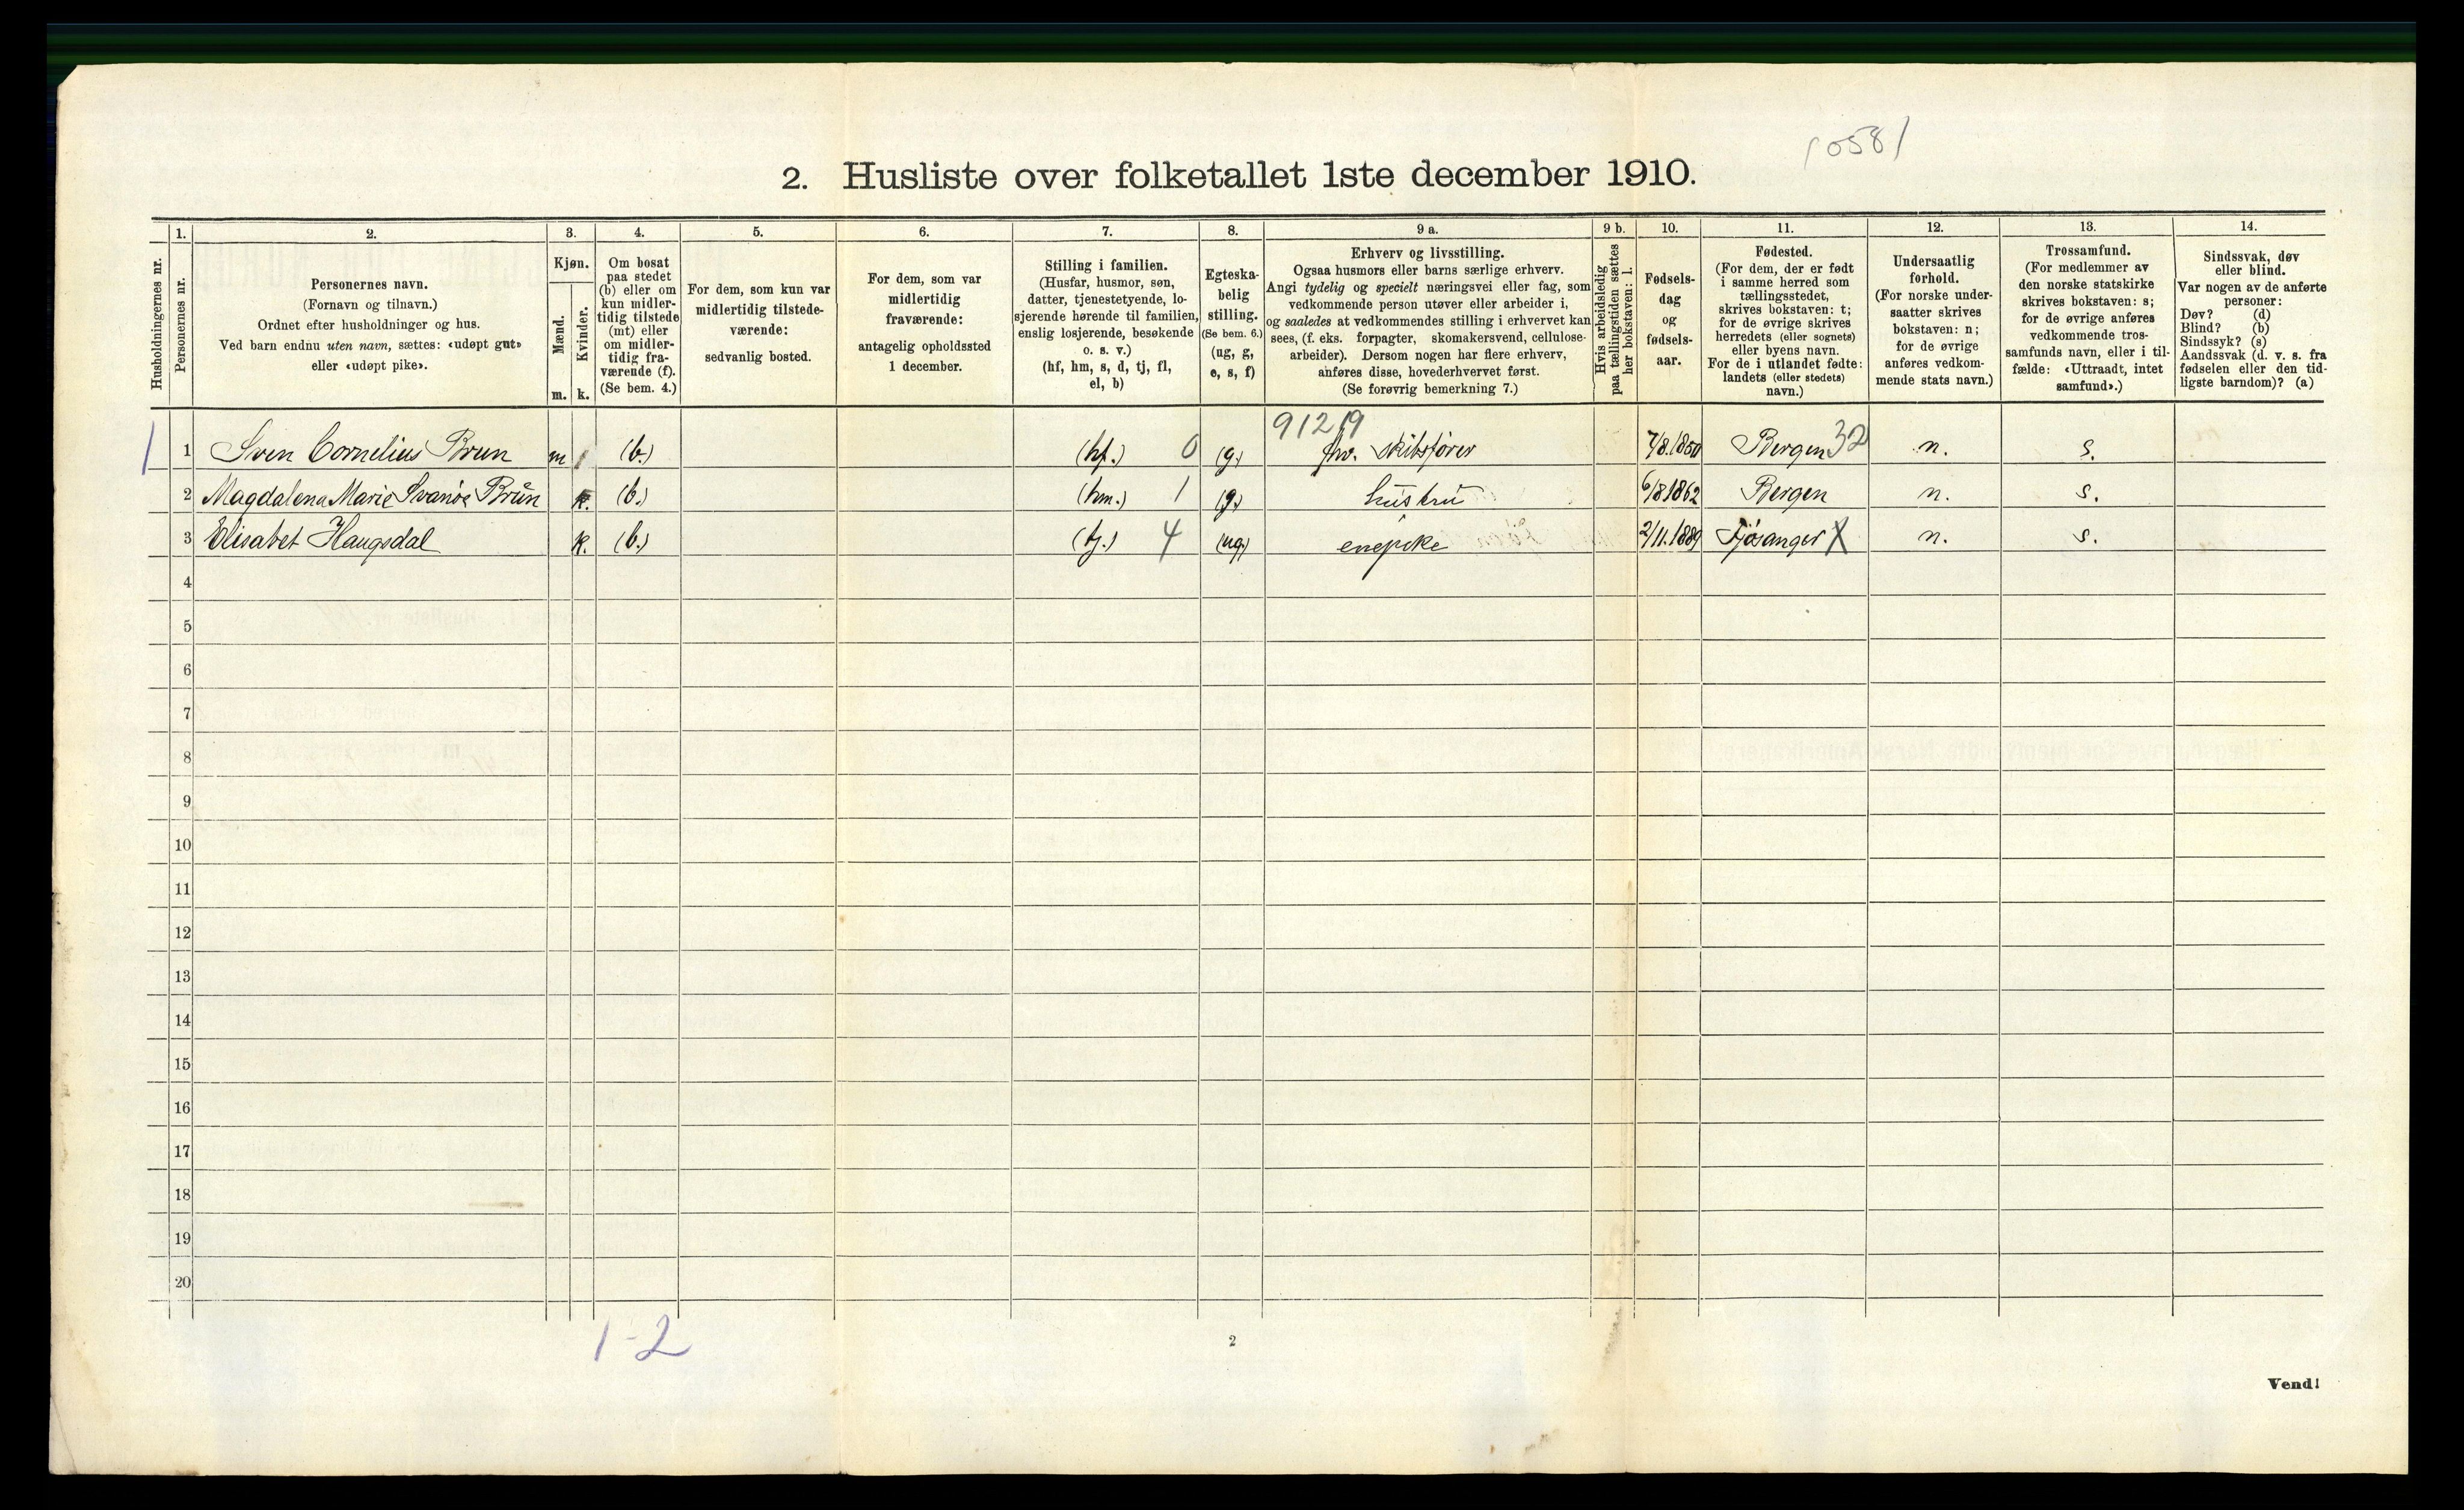 10581
2. Husliste over folketallet 1ste december 1910.
Husholdningernes nr.
1.
Personernes nr.
2.
Personernes navn.
(Fornavn og tilnavn.)
Ordnet efter husholdninger og hus.
Ved barn endnu uten navn, sættes: «udøpt gut»
eller «udøpt pike».
3.
Kjøn.
Mænd.
Kvinder.
m. k.
4.
Om bosat
paa stedet
(b) eller om
kun midler-
tidig tilstede
(mt) eller
om midler-
tidig fra-
værende (f).
(Se bem. 4.)
5.
For dem, som kun var
midlertidig tilstede-
værende:
sedvanlig bosted.
6.
For dem, som var
midlertidig
fraværende:
antagelig opholdssted
1 december.
7.
Stilling i familien.
(Husfar, husmor, søn,
datter, tjenestetyende, lo-
sjerende hørende til familien,
enslig losjerende, besøkende
o. s. v.)
(hf, hm, s, d, tj, fl,
el, b)
8.
Egteska-
belig
stilling.
(Se bem. 6.)
(ug, g,
e, s, f)
9 a.
Erhverv og livsstilling.
Ogsaa husmors eller barns særlige erhverv.
Angi tydelig og specielt næringsvei eller fag, som
vedkommende person utøver eller arbeider i,
og saaledes at vedkommendes stilling i erhvervet kan
sees, (f. eks. forpagter, skomakersvend, cellulose-
arbeider). Dersom nogen har flere erhverv,
anføres disse, hovederhvervet først.
(Se forøvrig bemerkning 7.)
9 b.
Hvis arbeidsledig
paa tællingstiden sættes
her bokstaven: l.
10.
Fødsels-
dag
og
fødsels-
aar.
11.
Fødested.
(For dem, der er født
i samme herred som
tællingsstedet,
skrives bokstaven: t;
for de øvrige skrives
herredets (eller sognets)
eller byens navn.
For de i utlandet fødte:
landets (eller stedets)
navn.)
12.
Undersaatlig
forhold.
(For norske under-
saatter skrives
bokstaven: n;
for de øvrige
anføres vedkom-
mende stats navn.)
13.
Trossamfund.
(For medlemmer av
den norske statskirke
skrives bokstaven: s;
for de øvrige anføres
vedkommende tros-
samfunds navn, eller i til-
fælde: «Uttraadt, intet
samfund».)
14.
Sindssvak, døv
eller blind.
Var nogen av de anførte
personer:
Døv? (d)
Blind? (b)
Sindssyk? (s)
Aandssvak (d. v. s. fra
fødselen eller den tid-
ligste barndom)? (a)
91219
1 1 Sven Cornelius Brun m 1 (b.) (hf.) 0 (g.) fhv. skibsfører 7/8.1850 Bergen 32 n. s.
2 Magdalena Marie Svanöe Brŭn k. (b.) (hm.) 1 (g.) hŭstrŭ 6/8 1862 Bergen n. s.
3 Elisabet Haugsdal k. (b.) (tj.) 4 (ug.) enepike 2/11.1889 Fjösanger X n. s.
4
5
6
7
8
9
10
11
12
13
14
15
16
17
18
19
20
1-2
2
Vend!